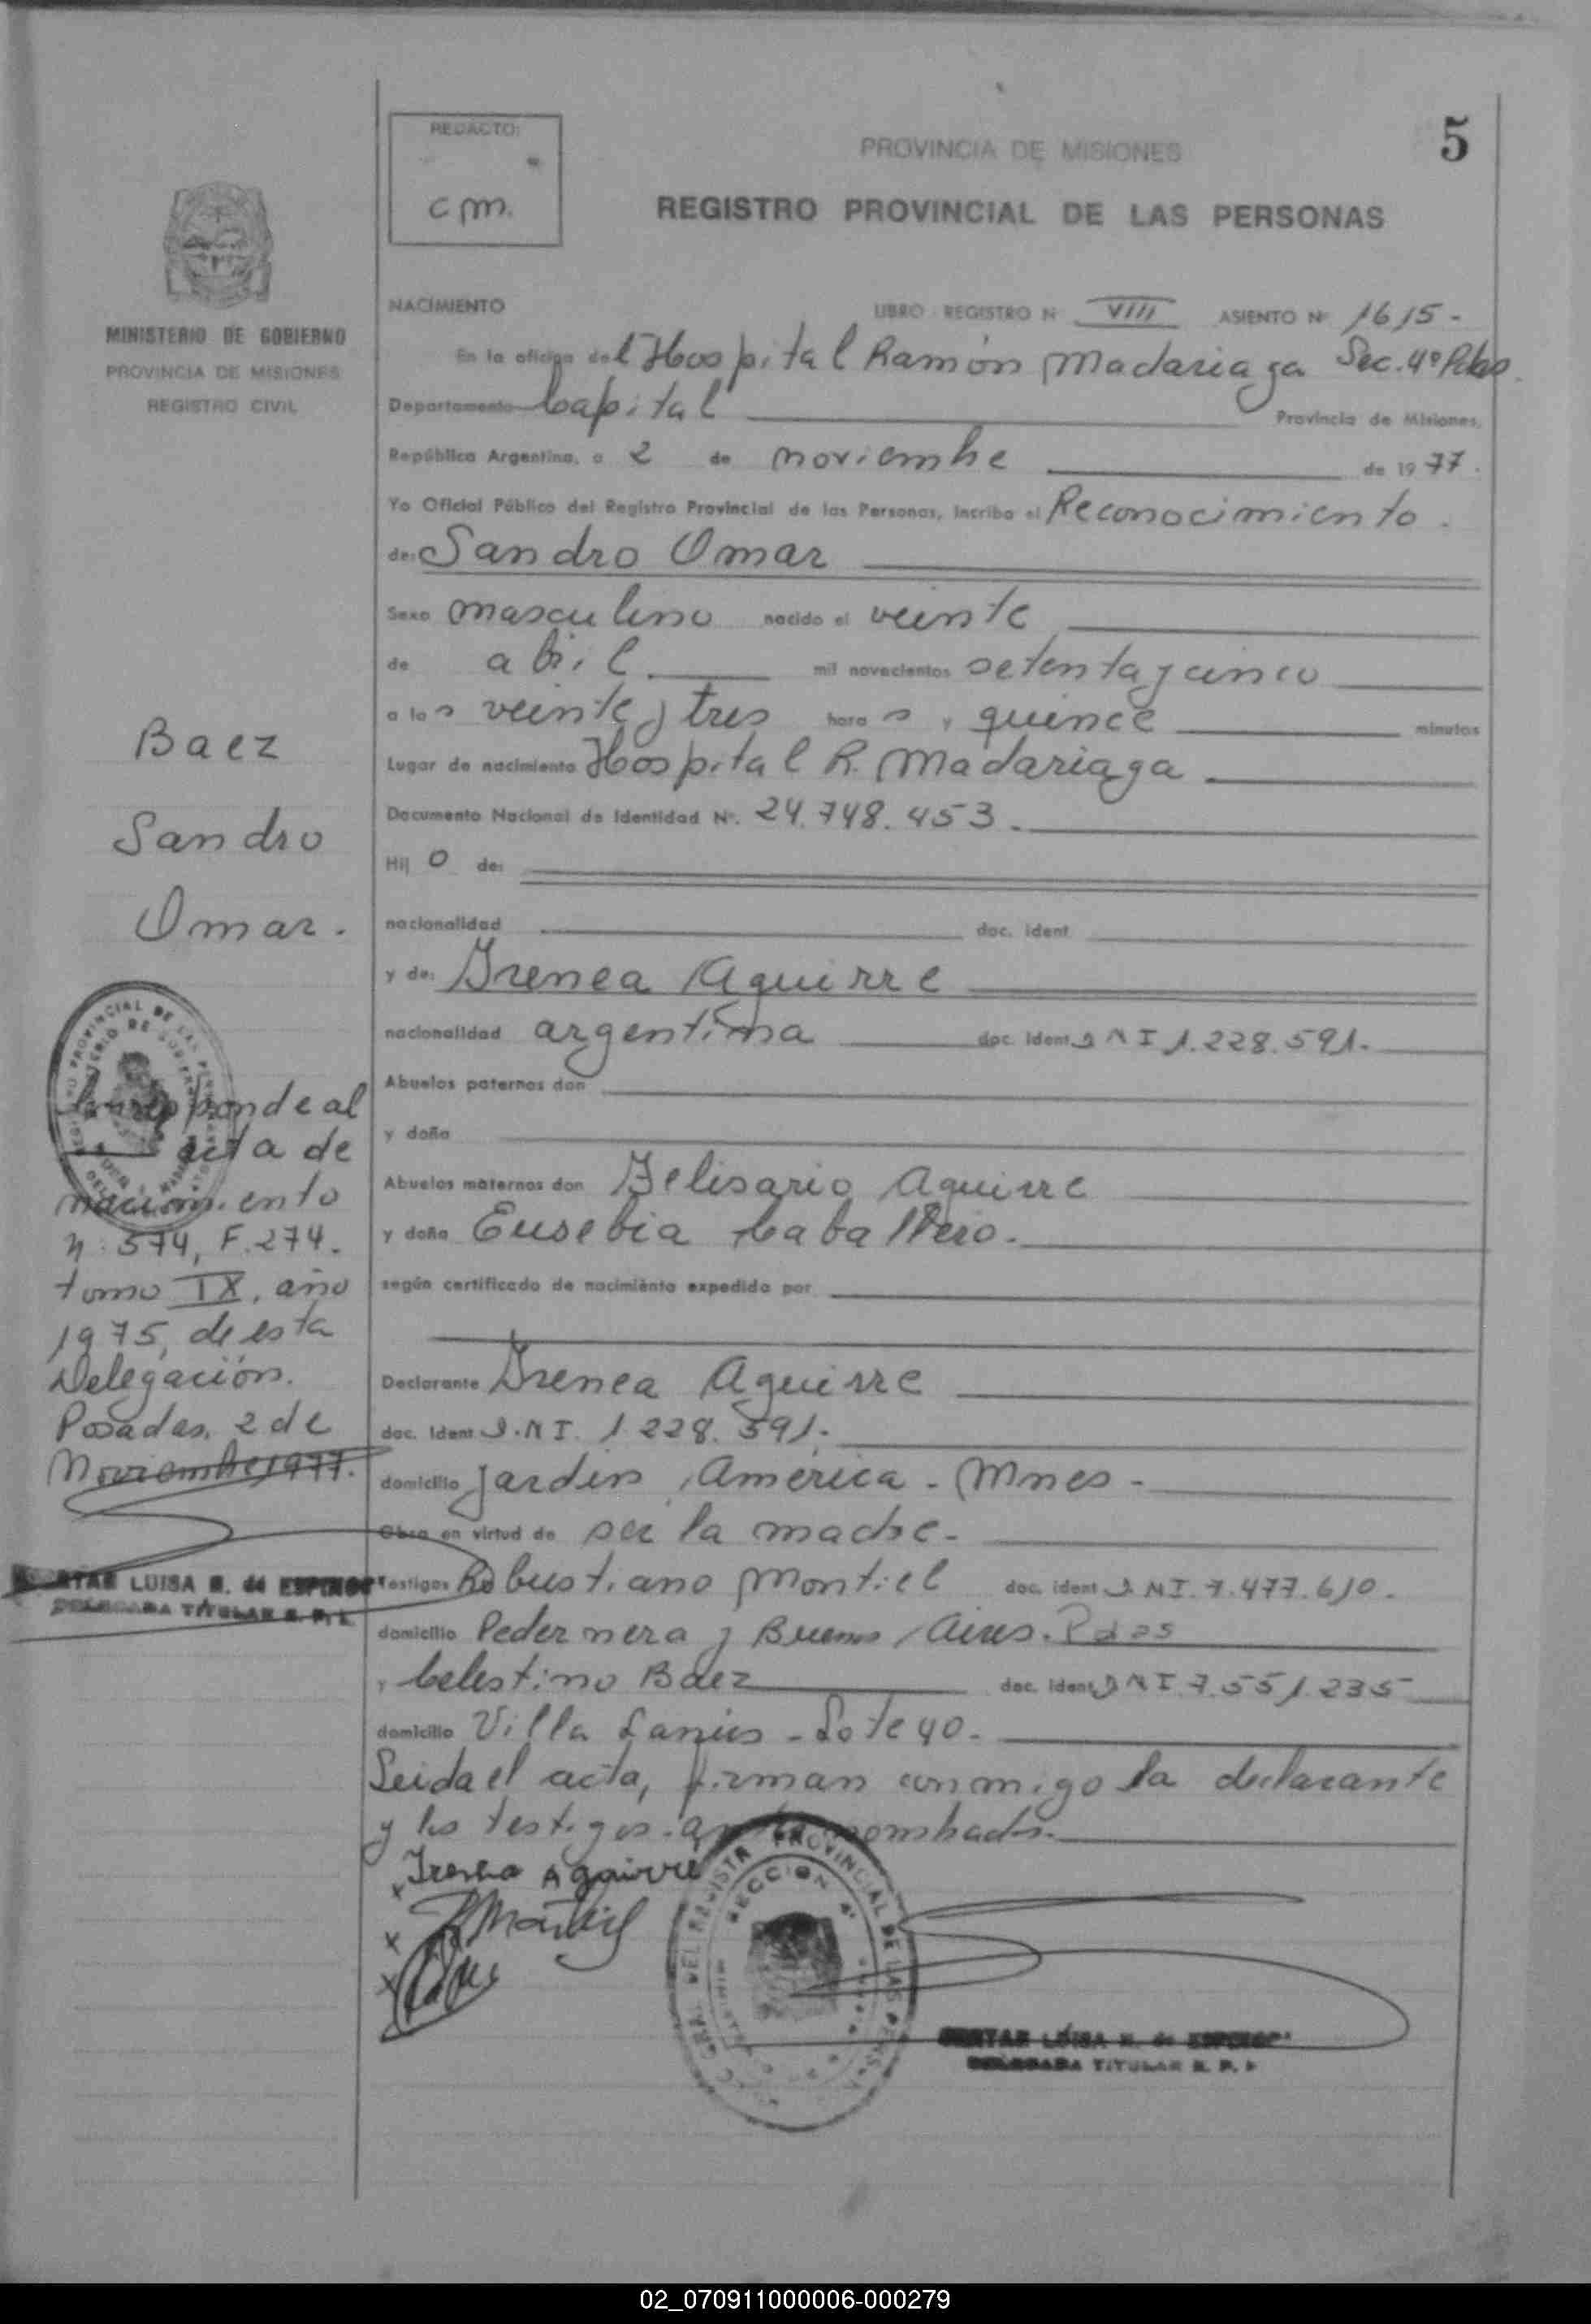 5
REDACTO:
cm.
PROVINCIA DE MISIONES
REGISTRO PROVINCIAL DE LAS PERSONAS
MINISTERIO DE GOBIERNO
PROVINCIA DE MISIONES
REGISTRO CIVIL
NACIMIENTO LIBRO REGISTRO N VIII ASIENTO Nº 1615-
En la oficina del Hospital Ramón Madariaga Sec. 4º Pdas.
Departamento Capital Provincia de Misiones,
República Argentina, a 2 de noviembre de 1977.
Yo Oficial Público del Registro Provincial de las Personas, incribo el Reconocimiento.
de: Sandro Omar
Sexo masculino nacido el veinte
de abril mil novecientos setenta y cinco
a las veinte y tres horas y quince minutos
Lugar de nacimiento Hospital R. Madariaga
Documento Nacional de Identidad Nº. 24.748.453.
Hijo de:
nacionalidad doc. ident
y de: Irenea Aguirre
nacionalidad argentina doc. ident DNI 1.228.591.
Abuelos paternos don
y doña
Abuelos maternos don Belisario Aguirre
y doña Eusebia Caballero.
según certificado de nacimiento expedido por
Declarante Irenea Aguirre
doc. ident D.N I. 1.228.591.
domicilio Jardín América - Mnes -
Obra en virtud de ser la madre-
Testigos Robustiano Montiel doc. ident DNI. 7.477.610.
domicilio Pedernera y Buenos Aires. Pdas
y Celestino Baez doc. ident DNI. 7.551.235
domicilio Villa Lanús - Lote 40.
Leida el acta, firman conmigo la declarante
y los testigos antes nombrados.
Irenea Aguirre
RMontiel
Baez
Sandro
Omar.
Corresponde al
acta de
nacimiento
n: 574, F. 274.
tomo IX, año
1975, de esta
Delegación.
Posadas, 2 de
Noviembre 1977.
LUISA de ESPINOSA
DELEGADA TITULAR R. P.
SECCION 4ª
PROVINCIAL DE LAS PERS.
LUISA de ESPINOSA
DELEGADA TITULAR R. P.
02_070911000006-000279